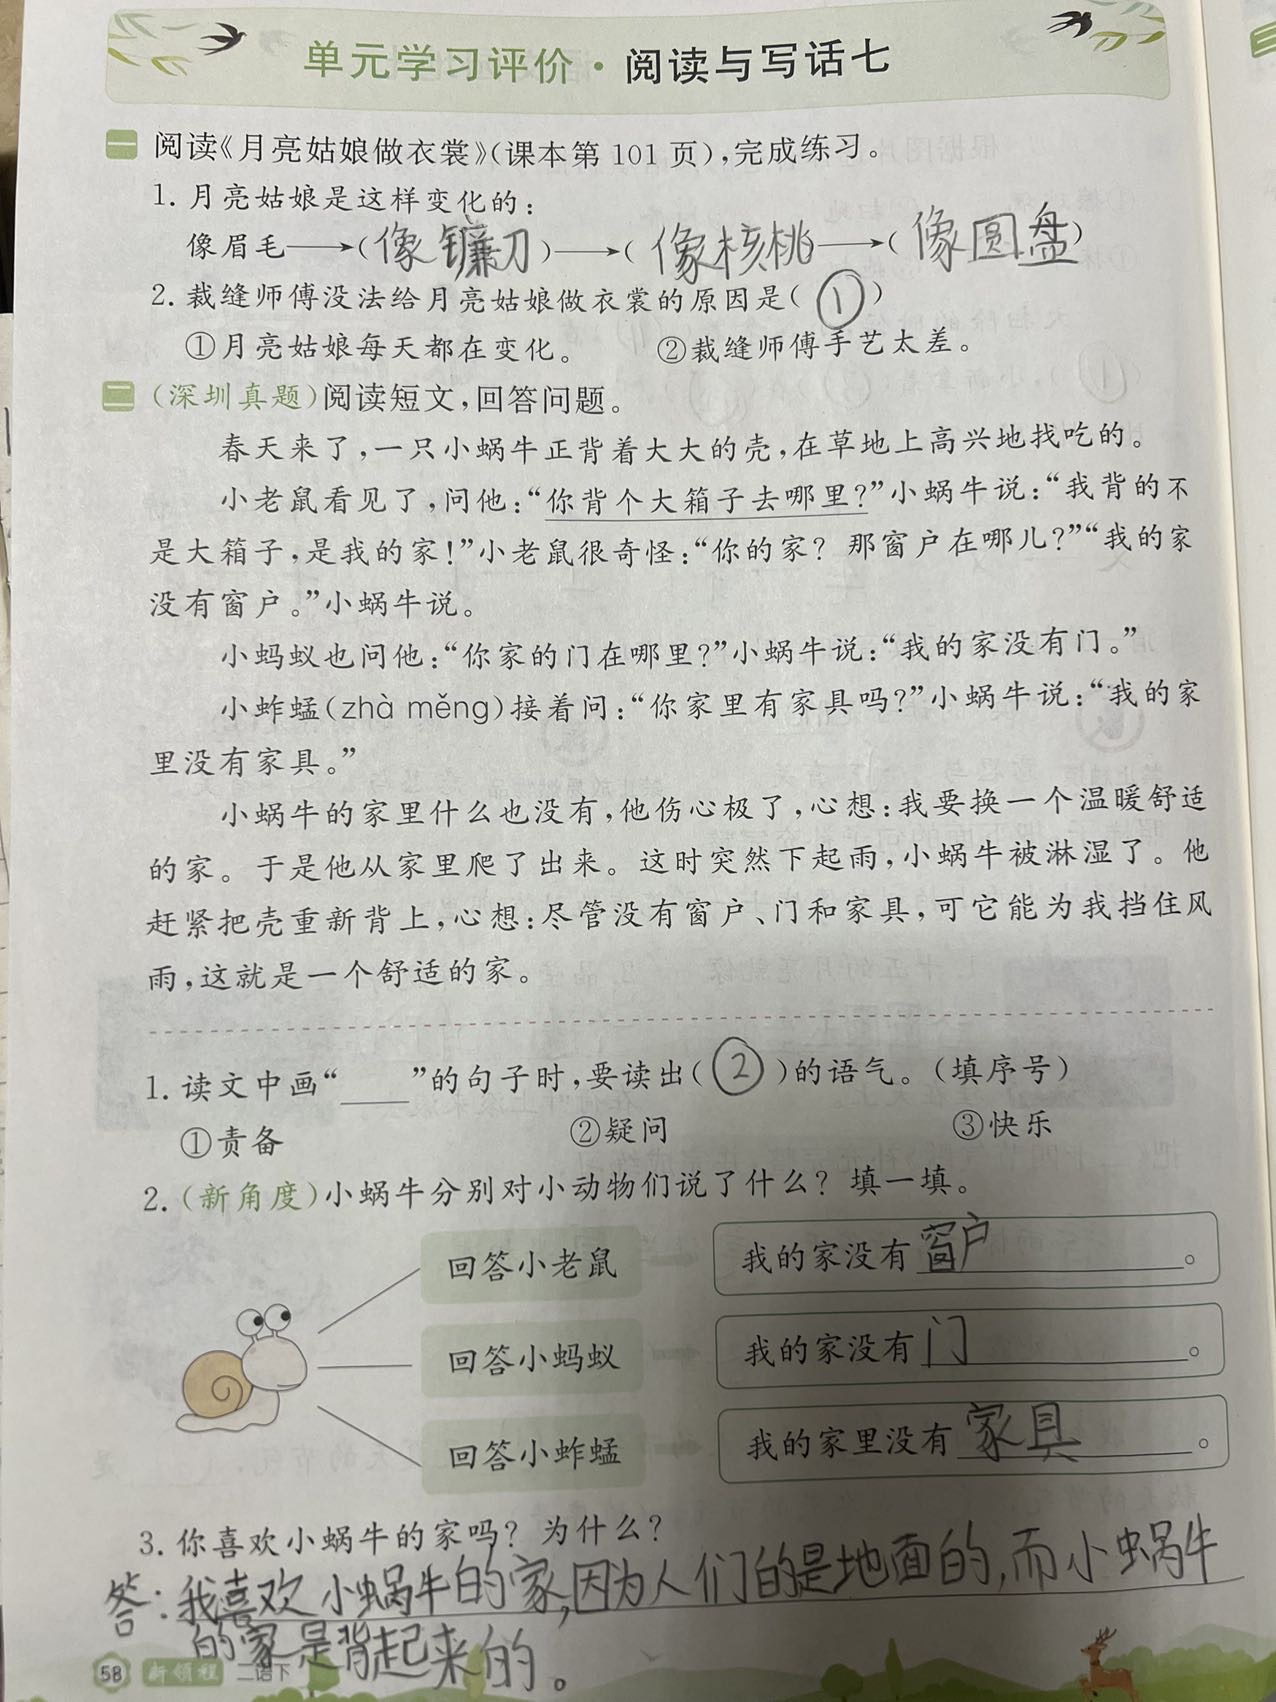 单元学习评价·阅读与写话七
一 阅读《月亮姑娘做衣裳》(课本第 101 页),完成练习。
1. 月亮姑娘是这样变化的:
像眉毛→(像镰刀)→(像核桃→(像圆盘)
2. 裁缝师傅没法给月亮姑娘做衣裳的原因是(①)
①月亮姑娘每天都在变化。 ②裁缝师傅手艺太差。
二 (深圳真题)阅读短文,回答问题。
春天来了,一只小蜗牛正背着大大的壳,在草地上高兴地找吃的。
小老鼠看见了,问他:“你背个大箱子去哪里?”小蜗牛说:“我背的不
是大箱子,是我的家!”小老鼠很奇怪:“你的家? 那窗户在哪儿?”“我的家
没有窗户。”小蜗牛说。
小蚂蚁也问他:“你家的门在哪里?”小蜗牛说:“我的家没有门。”
小蚱蜢(zhà měng)接着问:“你家里有家具吗?”小蜗牛说:“我的家
里没有家具。”
小蜗牛的家里什么也没有,他伤心极了,心想:我要换一个温暖舒适
的家。于是他从家里爬了出来。这时突然下起雨,小蜗牛被淋湿了。他
赶紧把壳重新背上,心想:尽管没有窗户、门和家具,可它能为我挡住风
雨,这就是一个舒适的家。
1. 读文中画“____”的句子时,要读出(②)的语气。(填序号)
①责备 ②疑问 ③快乐
2.(新角度)小蜗牛分别对小动物们说了什么? 填一填。
回答小老鼠 我的家没有窗户。
回答小蚂蚁 我的家没有门。
回答小蚱蜢 我的家里没有家具。
3. 你喜欢小蜗牛的家吗? 为什么?
答:我喜欢小蜗牛的家,因为人们的是地面的,而小蜗牛
的家是背起来的。
58 新领程 二语下